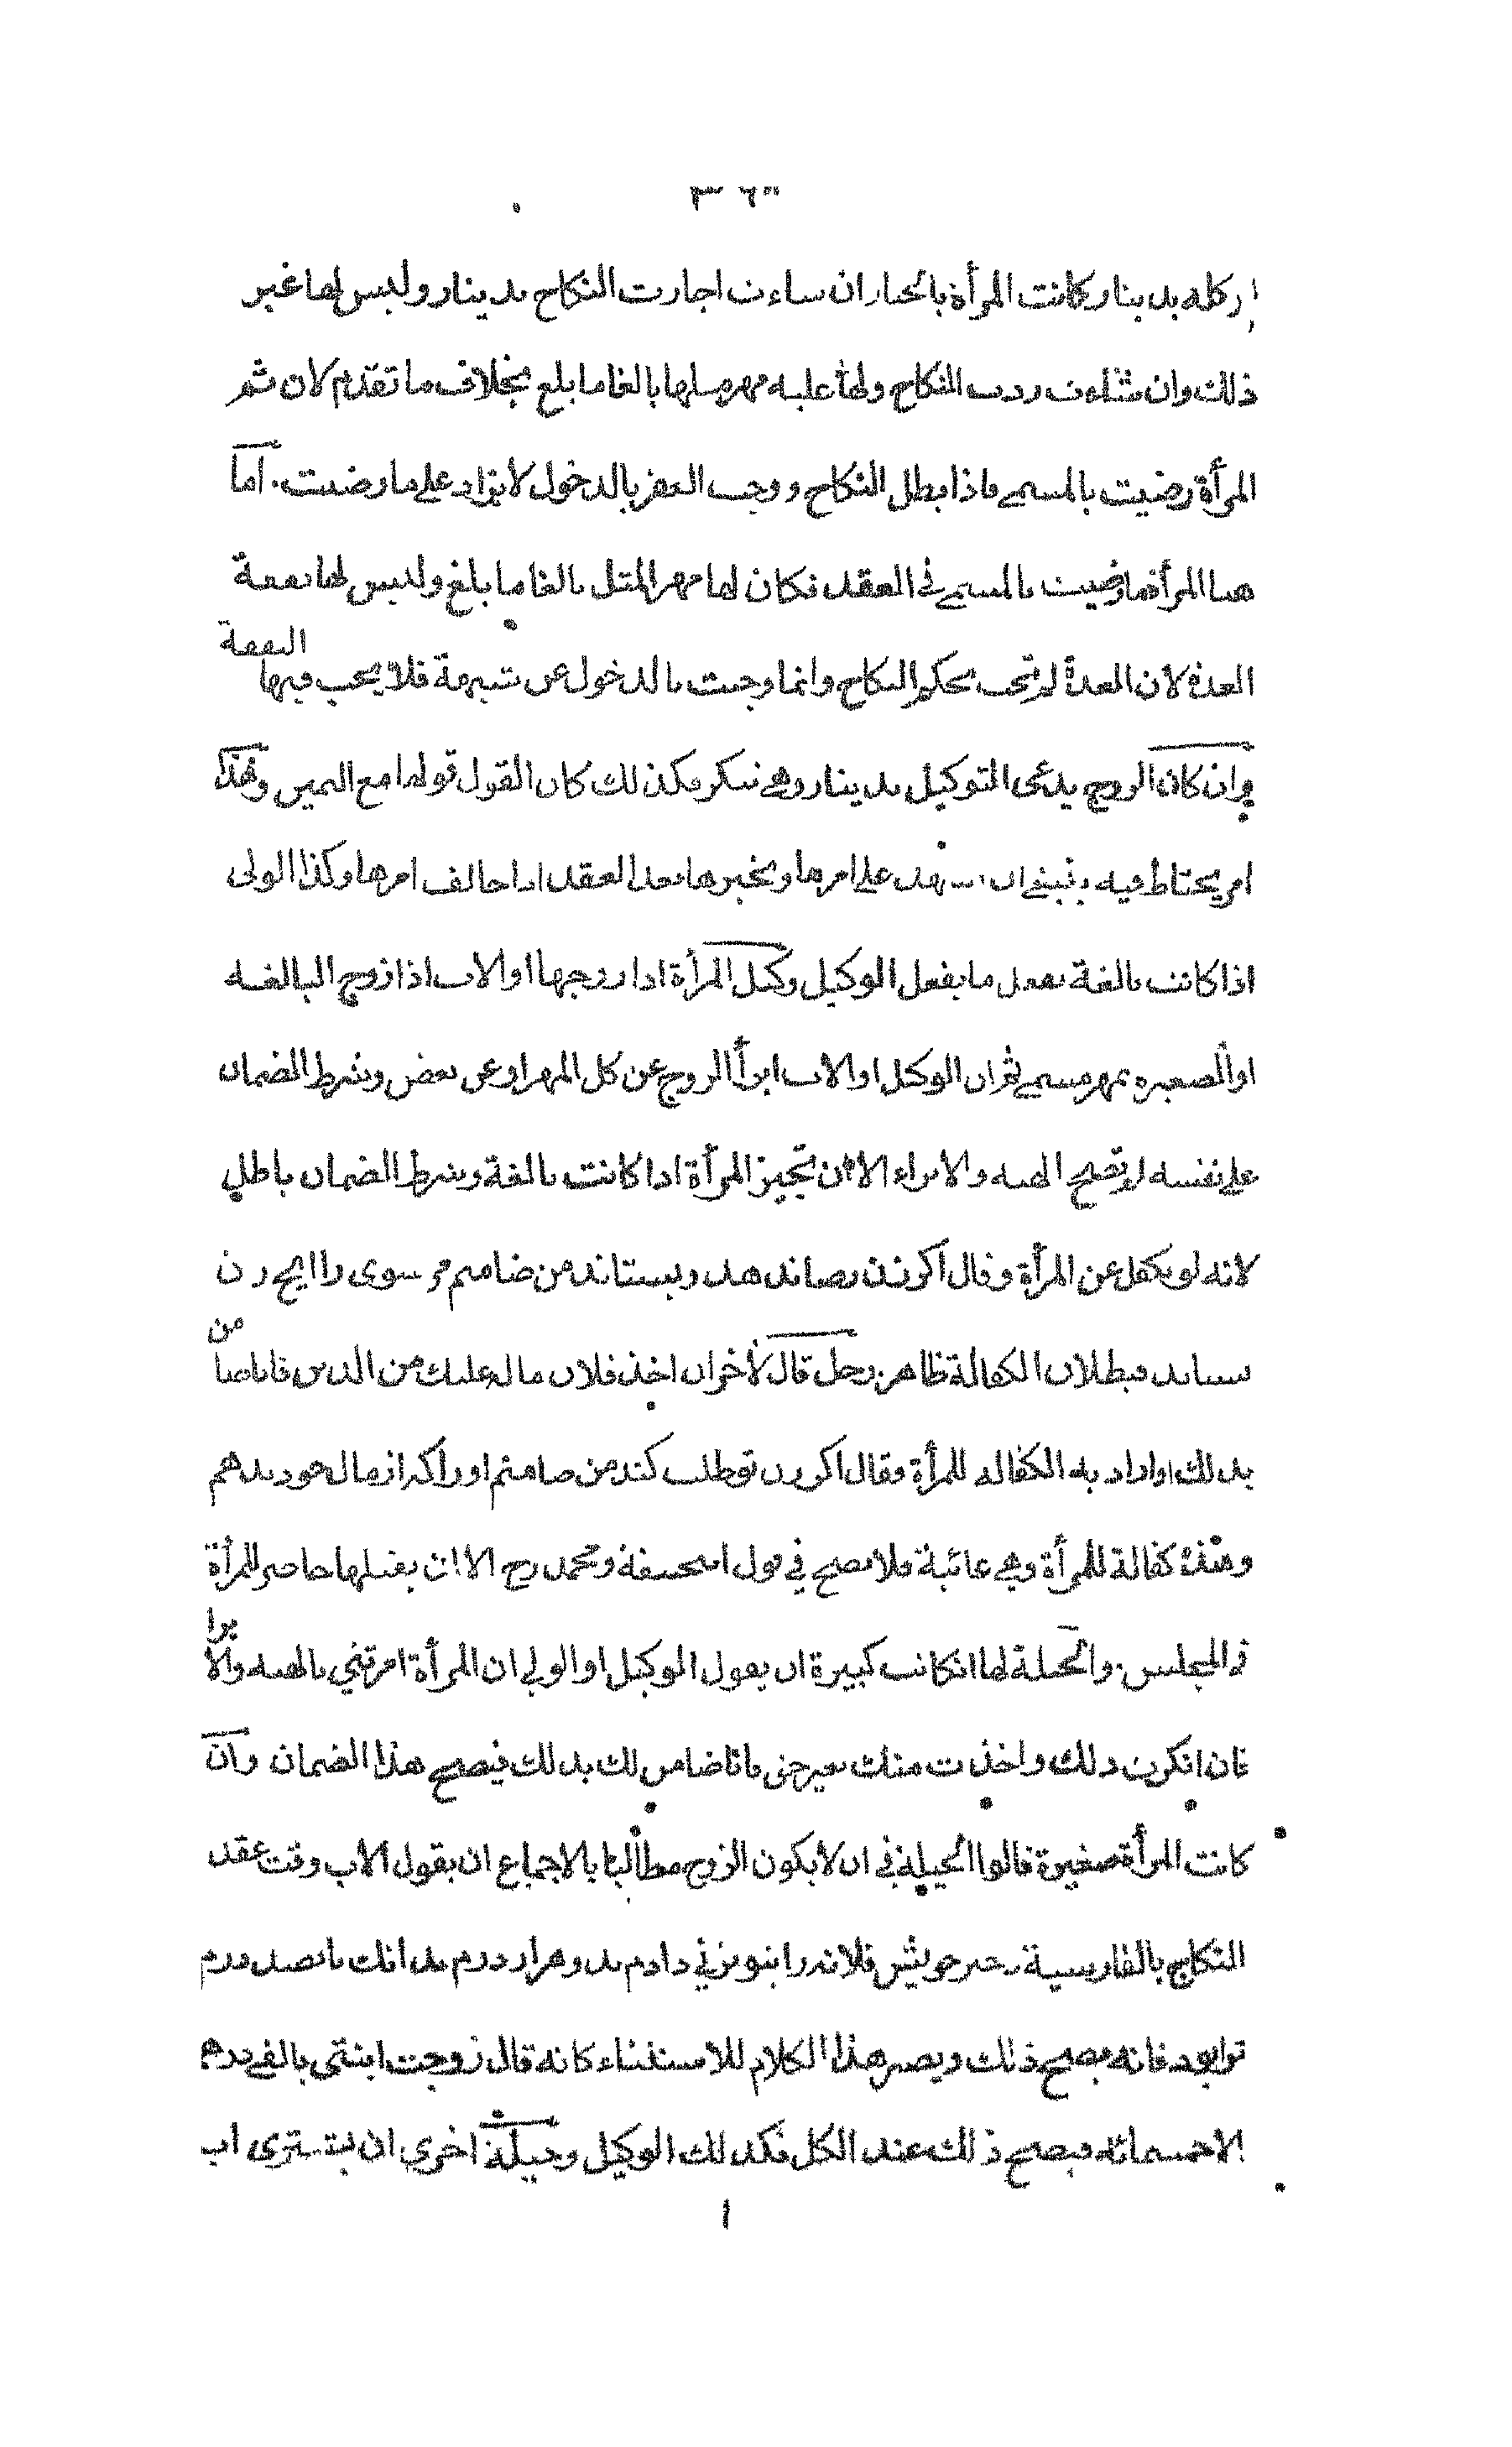 ٣٦٣
وكله بدينار كانت المرأة بالخيار ان شاءت اجازت النكاح بدينار وليس لها غير
ذلك وان شاءت ردت النكاح ولها عليه مهر مثلها بالغا ما بلغ بخلاف ما تقدم لان ثم
المرأة رضيت بالمسمى فاذا بطل النكاح ووجب العقر بالدخول لا يزاد على ما رضيت. اما
هنا المرأة ما رضيت بالمسمى في العقد فكان لها مهر المثل بالغا ما بلغ وليس لها نفقة
العدة لان العدة لم تجب بحكم النكاح وانما وجبت بالدخول عن شبهة فلا يجب فيها النفقة
وان كان الزوج يدعى التوكيل بدينار وهي تنكر فكذلك كان القول قولها مع اليمين وهذا
امر يحتاط فيه وينبغي ان يشهد على امرها ويخبرها بعد العقد اذا خالف امرها وكذا الولى
اذا كانت بالغة يفعل ما يفعل الوكيل وكيل المرأة اذا زوجها او الاب اذا زوج البالغه
او الصغيره بمهر مسمى ثم ان الوكيل او الاب ابرأ الزوج عن كل المهر او عن بعض وشرط الضمان
على نفسه لم تصح الهبه والابراء الا ان تجيز المرأة اذا كانت بالغة وشرط الضمان باطل
لانه لو يكفل عن المرأة وقال اكر زن رضا ندهد وبستاند من ضامنم مر سوى را ايج زن
بستاند فبطلان الكفالة ظاهر رجل قال لاخر ان اخذ فلان ماله عليك من الدين فانا ضامن
بذلك او اراد به الكفاله للمرأة فقال اكر زن تو طلب كند من ضامنم او را كه از مال خود بدهم
وهذه كفالة للمرأة وهي غائبة فلا تصح في قول ابيحنيفة ومحمد رح الا ان يقبلها حاضر للمرأة
في المجلس. والحيلة لها ان كانت كبيرة ان يقول الوكيل او الولي ان المرأة امرتني بالهبه والابرا
فان انكرت ذلك واخذت منك بغير حق فانا ضامن لك بذلك فيصح هذا الضمان وان
كانت المرأة صغيرة قالوا الحيلة في ان لا يكون الزوج مطالبا بالاجماع ان يقول الاب وقت عقد
النكاح بالفارسية دختر خويش فلانه را بتو بزني دادم بدو هزار درم بدانك پانصد درم
ترا بود فانه يصح ذلك ويصير هذا الكلام للاستثناء كانه قال زوجت ابنتى بالفى درهم
الا خمسمائه فيصح ذلك عند الكل فكذلك الوكيل وحيلة اخرى ان يشترى اب